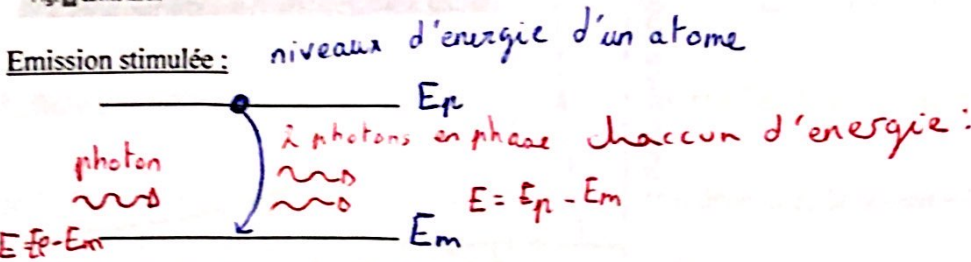 Emission stimulée : niveaux d'energie d'un atome
Ep
2 photons en phase chaccun d'energie :
photon
E = Ep - Em
E = Ep - Em
Em